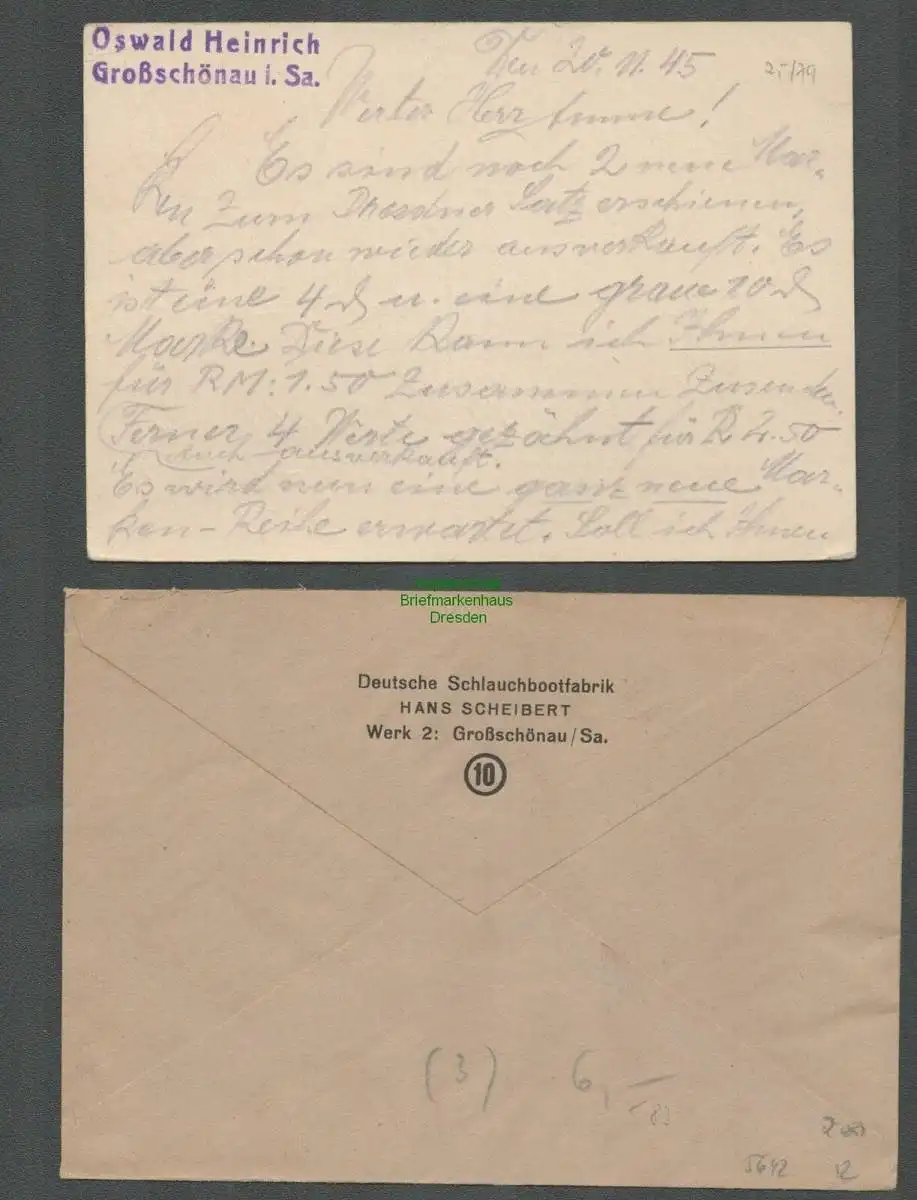 Oswald Heinrich
Großschönau i. Sa.
Den 20. 11. 45
25/79
Werter Herr !
Es sind noch 2 neue Mar-
ken zum Dresdner Satz erschienen,
aber schon wieder ausverkauft. Es
ist eine 4 ₰ u. eine graue 10 ₰
Marke. Diese kann ich Ihnen
für RM: 1.50 zusammen zusenden.
Ferner 4 Werte gezähnt für R 2.50
auch ausverkauft.
Es wird nun eine ganz neue Mar-
ken-Reihe erwartet. Soll ich Ihnen
Briefmarkenhaus
Dresden
Deutsche Schlauchbootfabrik
HANS SCHEIBERT
Werk 2: Großschönau/Sa.
10
(3) 6,—
5642 12